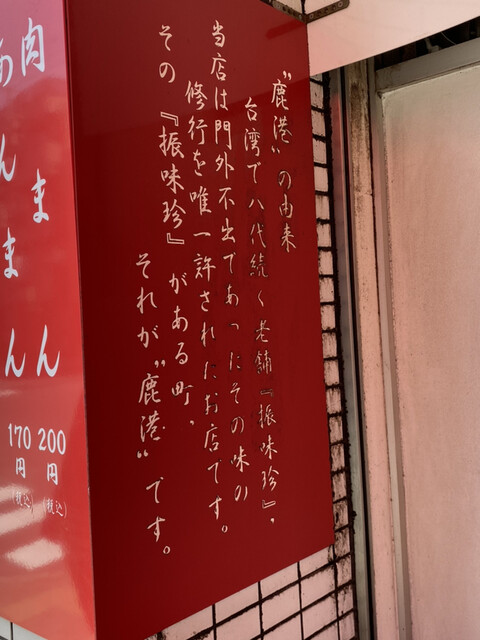 "鹿港"の由来
台湾で八代続く老舗『振味珍』、
当店は門外不出であったその味の
修行を唯一許されたお店です。
その『振味珍』がある町、
それが"鹿港"です。
肉まん
200円
(税込)
あんまん
170円
(税込)